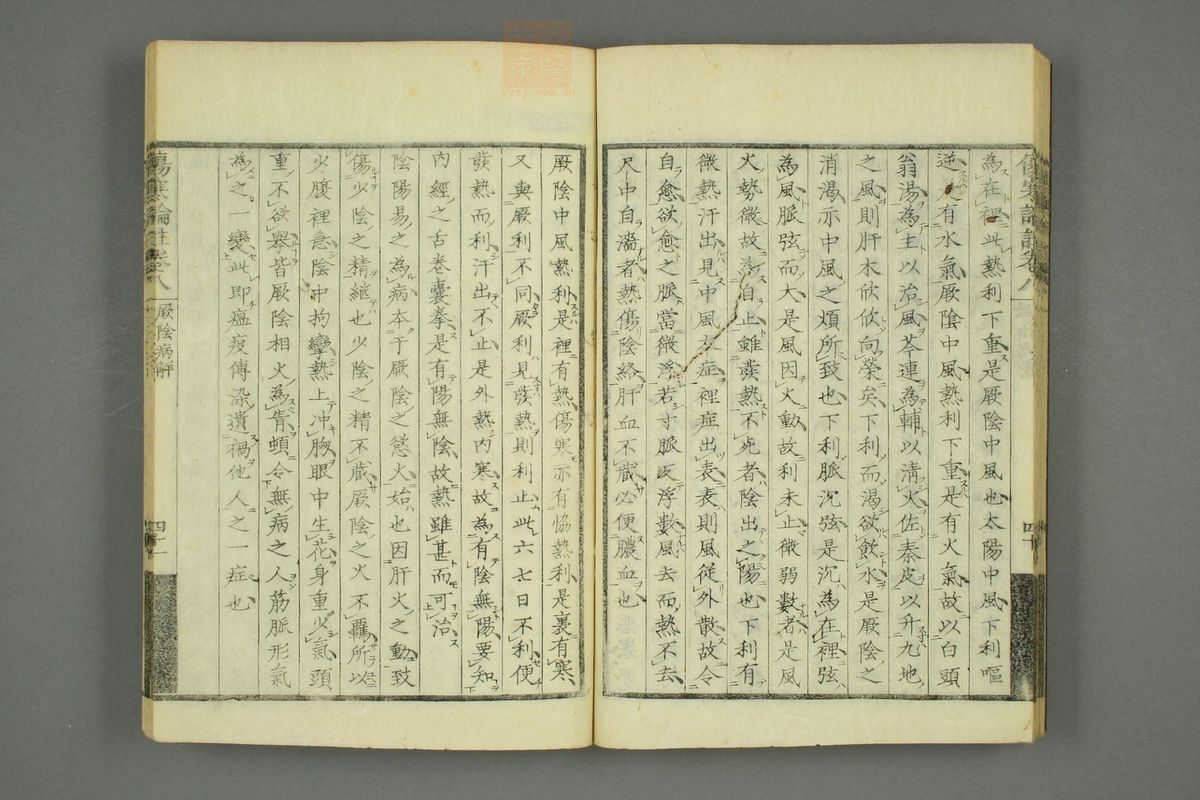 傷寒論註卷八
四十
為在裡此熱利下重是厥陰中風也太陽中風下利嘔
逆有水氣厥陰中風熱利下重是有火氣故以白頭
翁湯為主以治風芩連為輔以清火佐秦皮以升九地
之風則肝木欣欣向榮矣下利而渴欲飲水是厥陰之
消渴亦中風之煩所致也下利脈沉弦是沉為在裡弦
為風脈弦而大是風因火動故利未止微弱數者是風
火勢微故為自止雖發熱不死者陰出之陽也下利有
微熱汗出見中風表症裡症出表表則風從外散故令
自愈欲愈之脈當微浮若寸脈反浮數風去而熱不去
尺中自濇者熱傷陰絡肝血不藏必便膿血也
厥陰中風熱利是裡有熱傷寒亦有協熱利是裏有寒
又與厥利不同厥利見發熱則利止此六七日不利便
發熱而利汗出不止是外熱內寒故為有陰無陽要知
內經之舌卷囊拳是有陽無陰故熱雖甚而可治
陰陽易之為病本于厥陰之慾火始也因肝火之動致
傷少陰之精繼也少陰之精不藏厥陰之火不羈所以
少腹裡急陰中拘攣熱上冲胸眼中生花身重少氣頭
重不欲舉皆厥陰相火為眚頓令無病之人筋脈形氣
為之一變此即瘟疫傳染遺禍他人之一症也
傷寒論註卷八
厥陰病解
四十一
zysj.com.cn